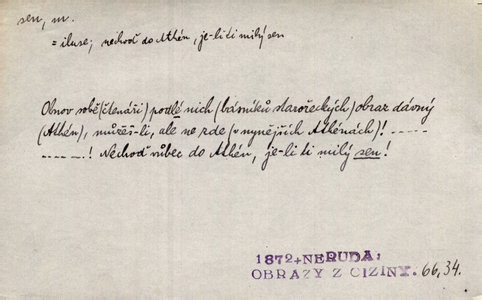 sen, m.
= iluse; nechoď do Athén, je-li ti milý sen
Obnov sobě (čtenáři) podlé nich (básníků starořeckých) obraz dávný
(Athén), můžeš-li, ale ne zde (v nynějších Athénách)! - - - - -
- - - - - ! Nechoď vůbec do Athén, je-li ti milý sen!
1872+NERUDA:
OBRAZY Z CIZINY. 66,34.